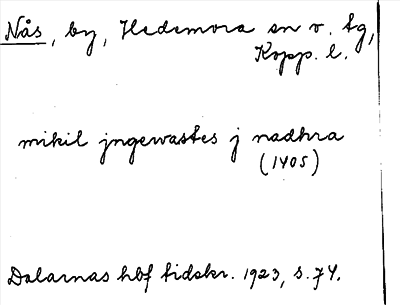 Nås, by, Hedemora sn o. tg,
Kopp. l.
mikil jngewastes j nadhra
(1405)
Dalarnas hbf tidskr. 1923, s. 74.